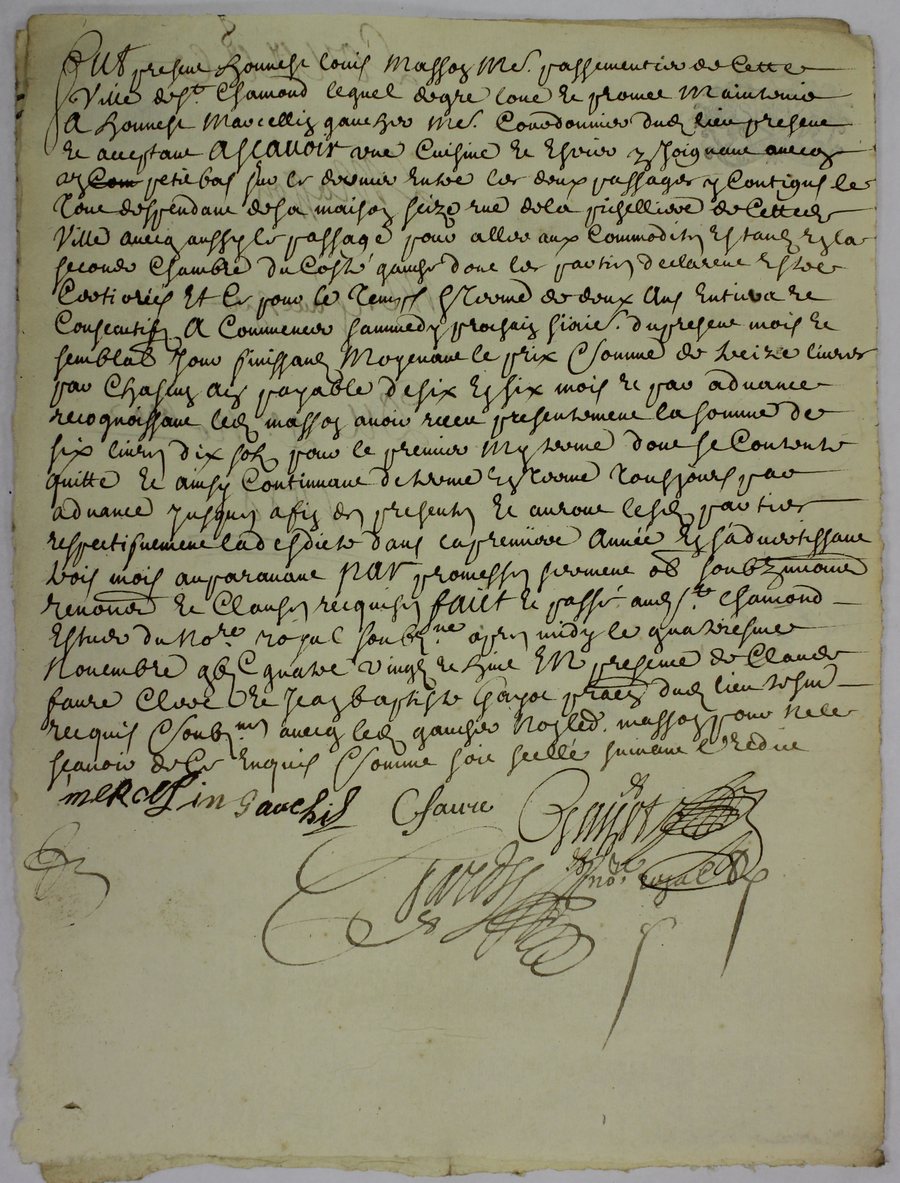 Fut present honneste louis Masson Me. passementier de Cette
Ville de St. Chamond lequel de gre loue et promet Maintenir
A honneste Marcellin gaucher Me. Courdonnier dud. lieu present
et acceptant ASCAVOIR une Cuisine et esvier y Joignant avecq
un petit bas sur le dernier Entre les deux passages y Contigus le
tout despendant de sa maison seize rue de la fiselliere de Cette d.
Ville avecq aussy le passage pour aller aux Commodites Estants En la
seconde Chambre du Costé gauche dont les parties declarent Estre
Certiorées Et Ce pour le temps & terme de deux Ans Entiers et
Consecutifs A Commencer sammedy prochain du present mois et
semblable Jour finissant Moyenant le prix & somme de treize livres
par Chascun an payable de six En six mois et par advance
recognoissant led. masson avoir receu presentement la somme de
six livres dix sols pour le premier My terme dont se Contente
quitte et ainsy Continuant de terme En terme tousjours par
advance Jusques a fin des presentes et auront lesd. parties
respectivement la desdicte dans la premiere Année En s'advertissant
trois mois auparavant PAR promesses serment ob. soubzmions
renonon. et Clauses recquises FAICT et passé aud. St. Chamond
Estude du Nore. royal soubsne. apres midy le quatriesme
Novembre gbic quatre vingt et huict EN presence de Claude
faure Clerc et Jean baptiste dud. lieu tesm.
recquis & soubsnes avecq led. gaucher Non led. masson pour ne le
scavoir de Ce Enquis & somme soit scellé suivant l'Edict
mercellin gauchié CFaure
nore. royal